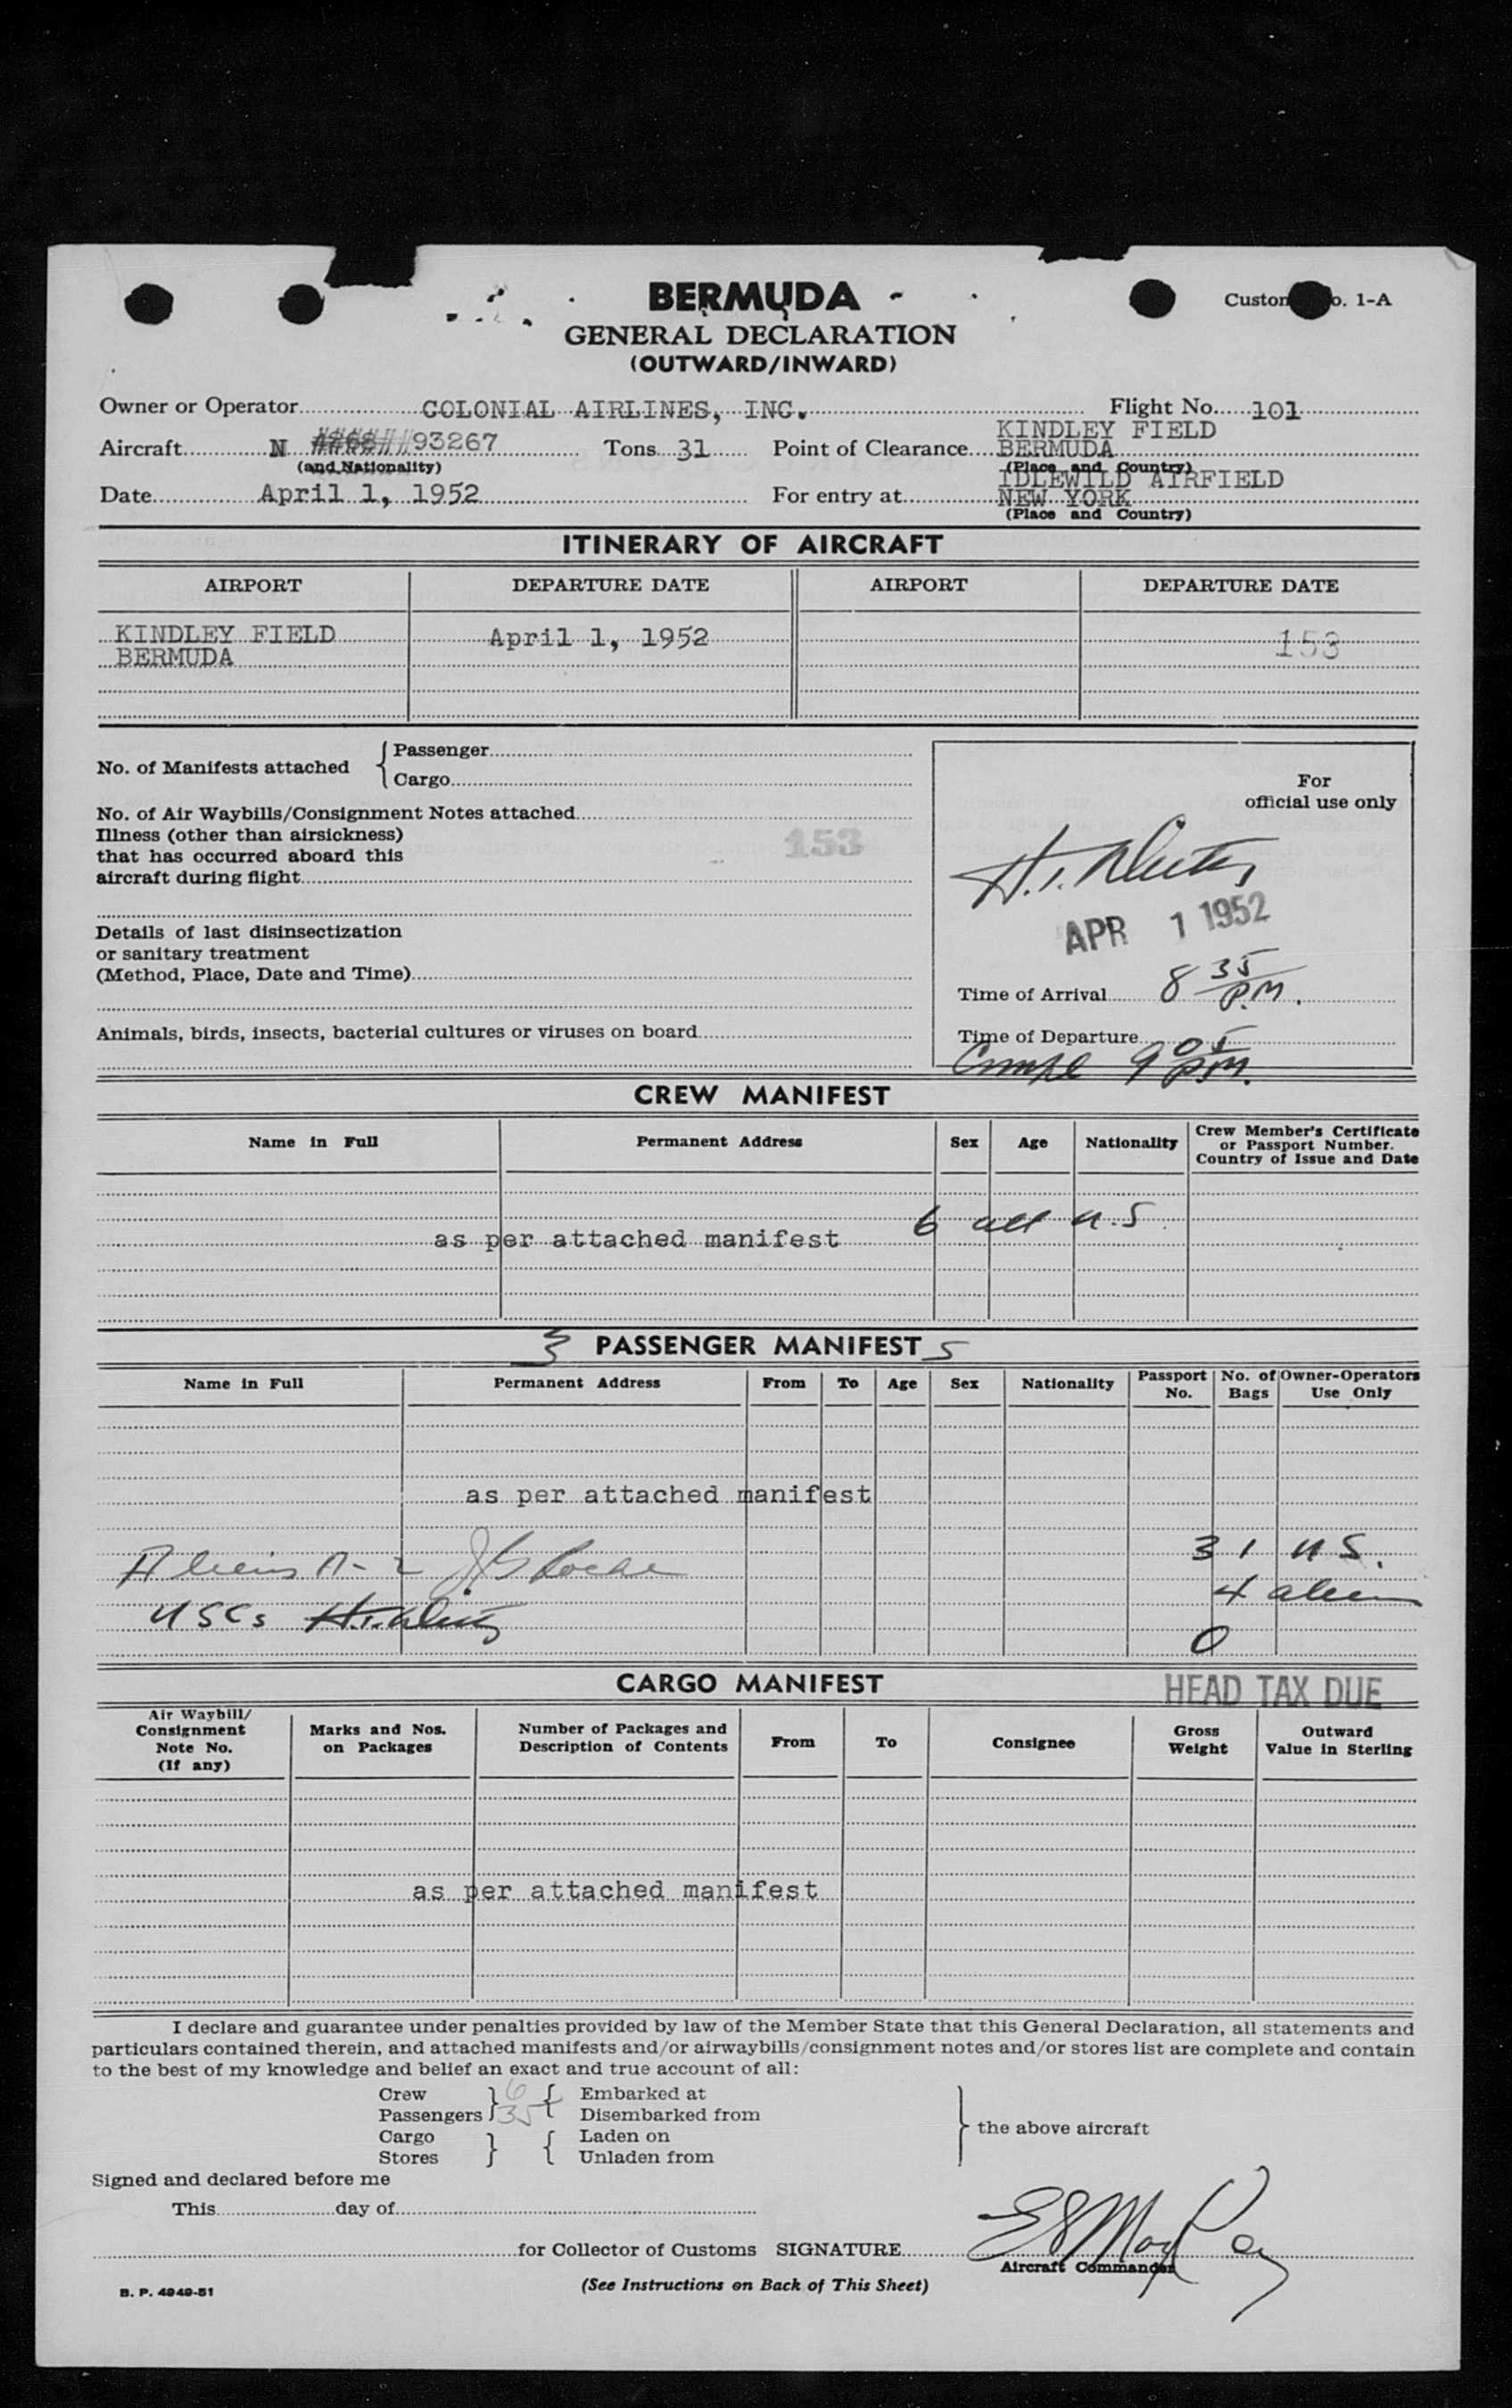 BERMUDA
GENERAL DECLARATION
(OUTWARD/INWARD)
Custom No. 1-A
Owner or Operator COLONIAL AIRLINES, INC. Flight No. 101
Aircraft N 93267 (and Nationality) Tons 31 Point of Clearance KINDLEY FIELD BERMUDA (Place and Country)
Date April 1, 1952 For entry at IDLEWILD AIRFIELD NEW YORK (Place and Country)
ITINERARY OF AIRCRAFT
AIRPORT DEPARTURE DATE AIRPORT DEPARTURE DATE
KINDLEY FIELD April 1, 1952 153
BERMUDA
No. of Manifests attached { Passenger
Cargo
No. of Air Waybills/Consignment Notes attached
Illness (other than airsickness)
that has occurred aboard this
aircraft during flight
153
Details of last disinsectization
or sanitary treatment
(Method, Place, Date and Time)
Animals, birds, insects, bacterial cultures or viruses on board
For
official use only
APR 1 1952
Time of Arrival 8 35 P.M.
Time of Departure
9 05 P.M.
CREW MANIFEST
Name in Full Permanent Address Sex Age Nationality Crew Member's Certificate or Passport Number. Country of Issue and Date
as per attached manifest 6 all U.S.
3 PASSENGER MANIFEST 5
Name in Full Permanent Address From To Age Sex Nationality Passport No. No. of Bags Owner-Operators Use Only
as per attached manifest
31 U.S.
Aliens A-2 Roche
4 alien
USCs
0
CARGO MANIFEST
HEAD TAX DUE
Air Waybill/ Consignment Note No. (If any) Marks and Nos. on Packages Number of Packages and Description of Contents From To Consignee Gross Weight Outward Value in Sterling
as per attached manifest
I declare and guarantee under penalties provided by law of the Member State that this General Declaration, all statements and
particulars contained therein, and attached manifests and/or airwaybills/consignment notes and/or stores list are complete and contain
to the best of my knowledge and belief an exact and true account of all:
Crew } 6 { Embarked at
Passengers } 35 { Disembarked from } the above aircraft
Cargo } { Laden on
Stores } { Unladen from
Signed and declared before me
This day of
for Collector of Customs SIGNATURE
Aircraft Commander
B. P. 4949-51
(See Instructions on Back of This Sheet)